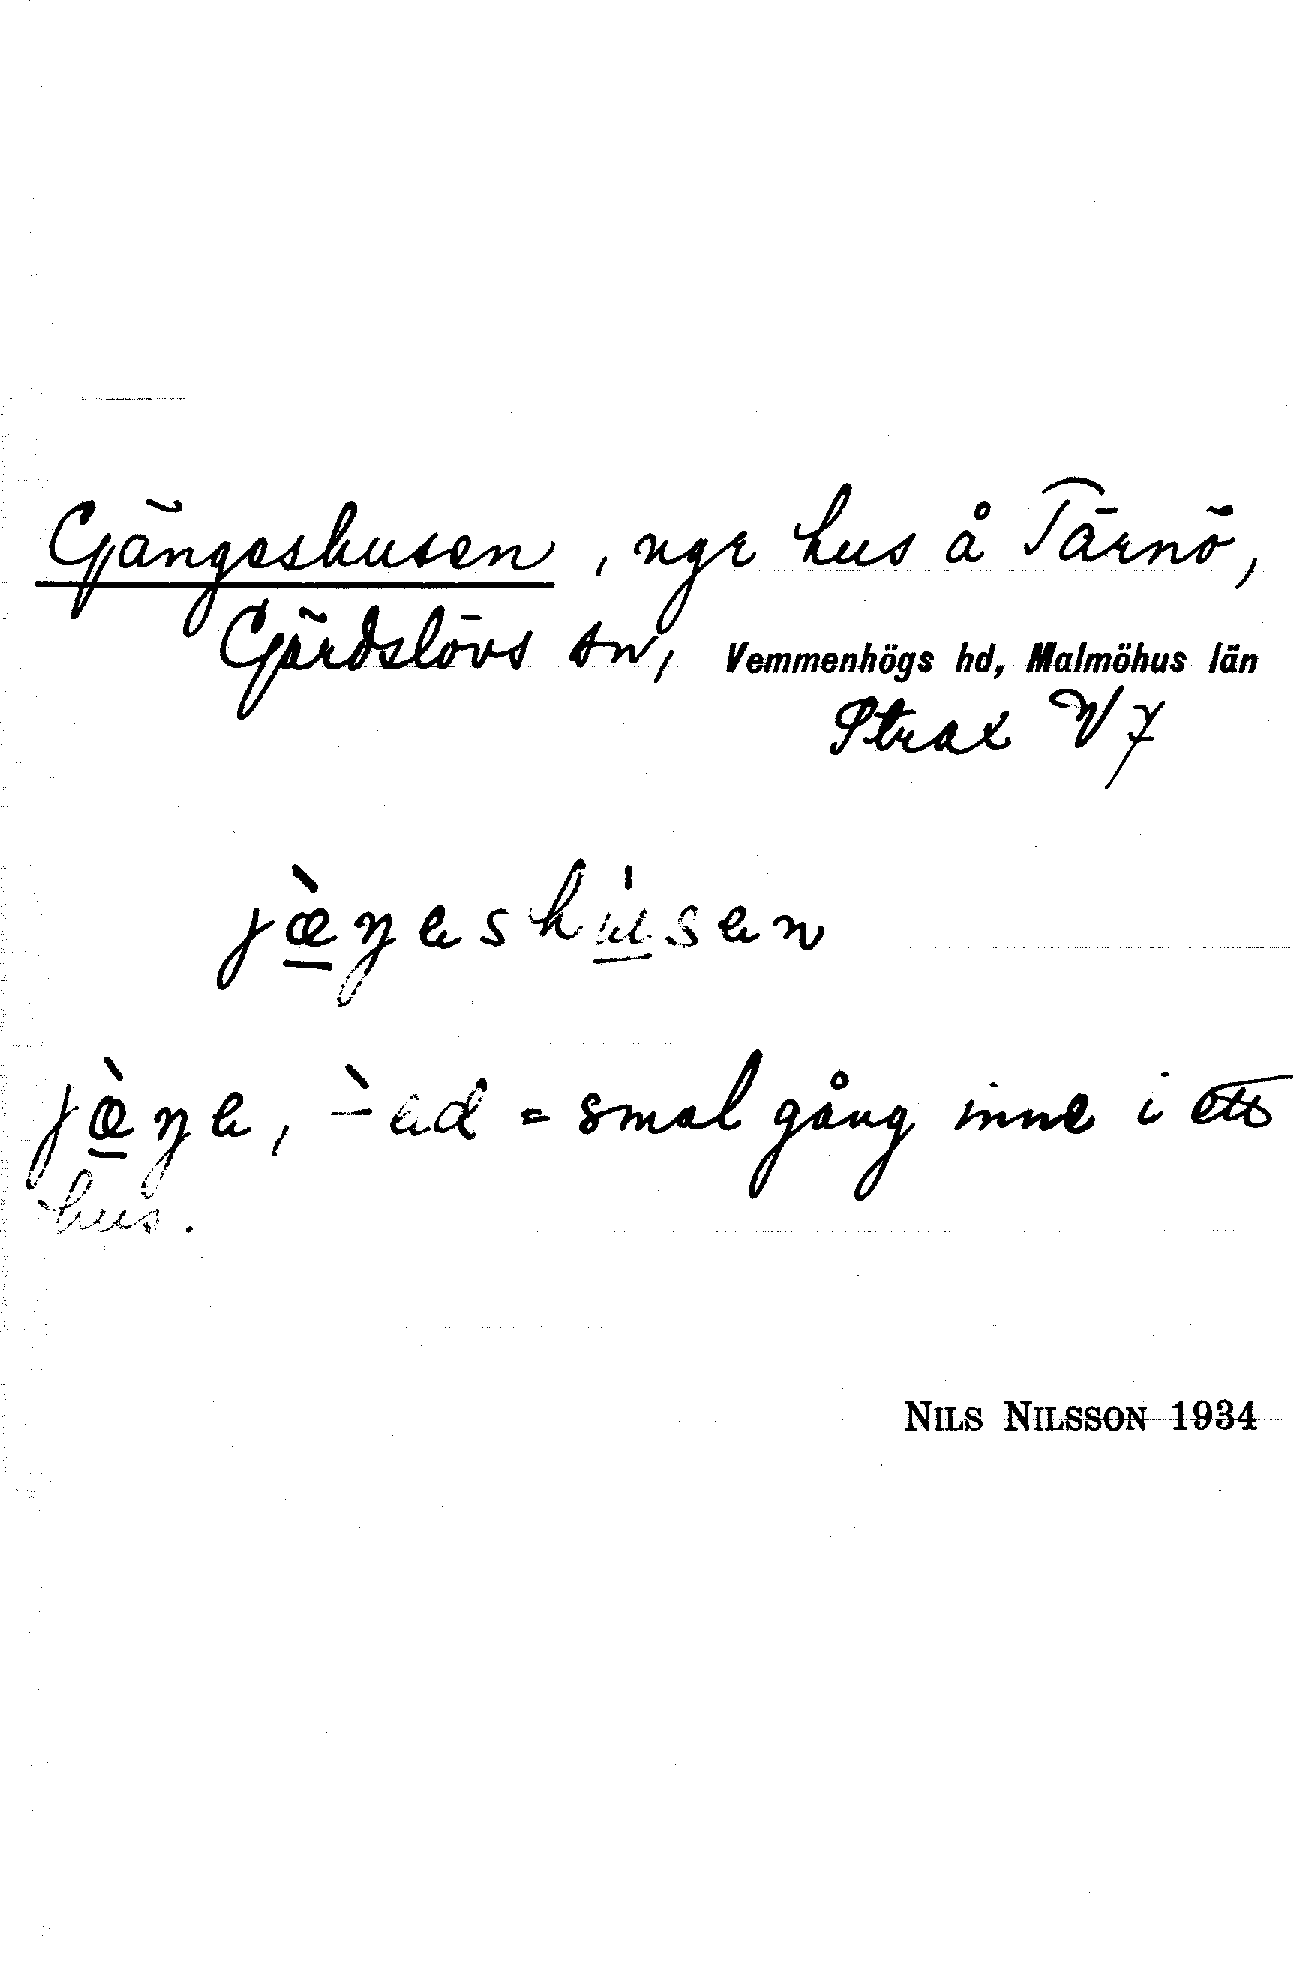 Gängeshusen, ngr hus å Tärnö,
Gärdslövs sn, Vemmenhögs hd, Malmöhus län
Strax V 7
jæ̀ŋeshu̍sen
jæ̀ŋe, -̀ed = smal gång inne i ett
hus.
NILS NILSSON 1934